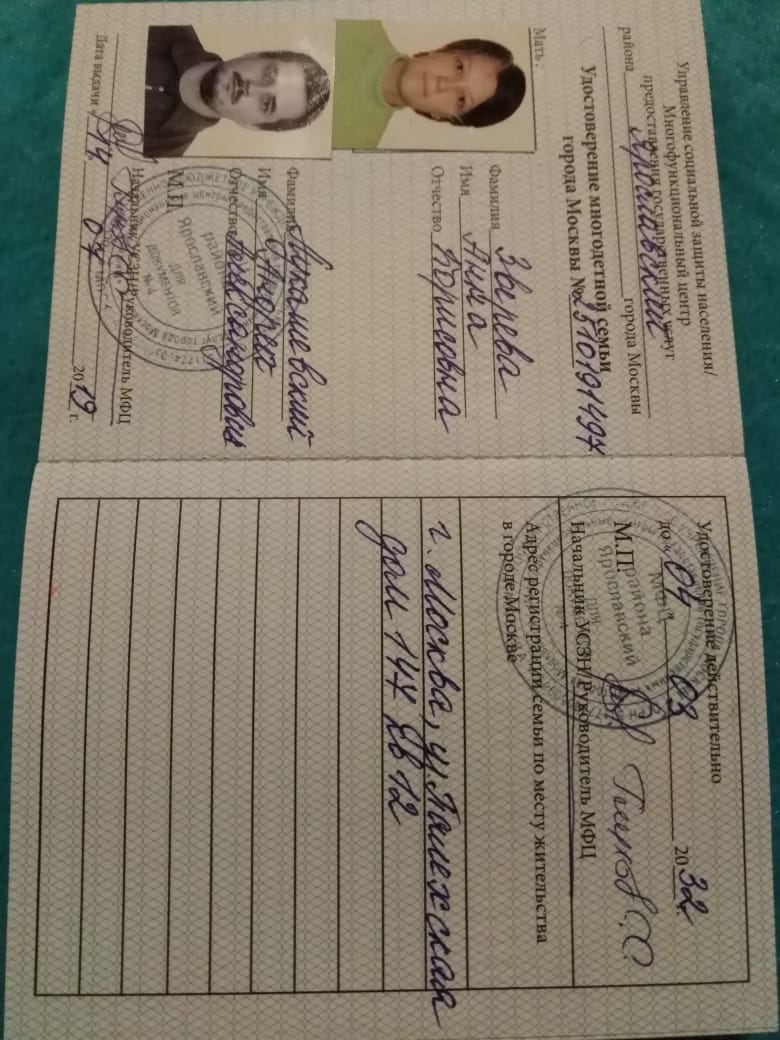 Управление социальной защиты населения/
Многофункциональный центр
предоставления государственных услуг
района Ярославский города Москвы
Удостоверение многодетной семьи
города Москвы №
Мать:
Фамилия Зверева
Имя Анна
Отчество Борисовна
Фамилия
Имя Андрей
Отчество Александрович
М.П.
Начальник УСЗН/Руководитель МФЦ
Дата выдачи « 14 07 2019 г.
района
Ярославский
для
документов
№4
Удостоверение действительно
до « 04 » 03 2032
М.П.
Начальник УСЗН/Руководитель МФЦ
МФЦ
района
Ярославский
Адрес регистрации семьи по месту жительства
в городе Москве
г. Москва, ул. Палехская
дом 147 кв 12